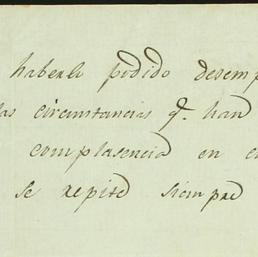 haberle podido desemp
las circunstancias q. han
complasencia en e
se repite siempre